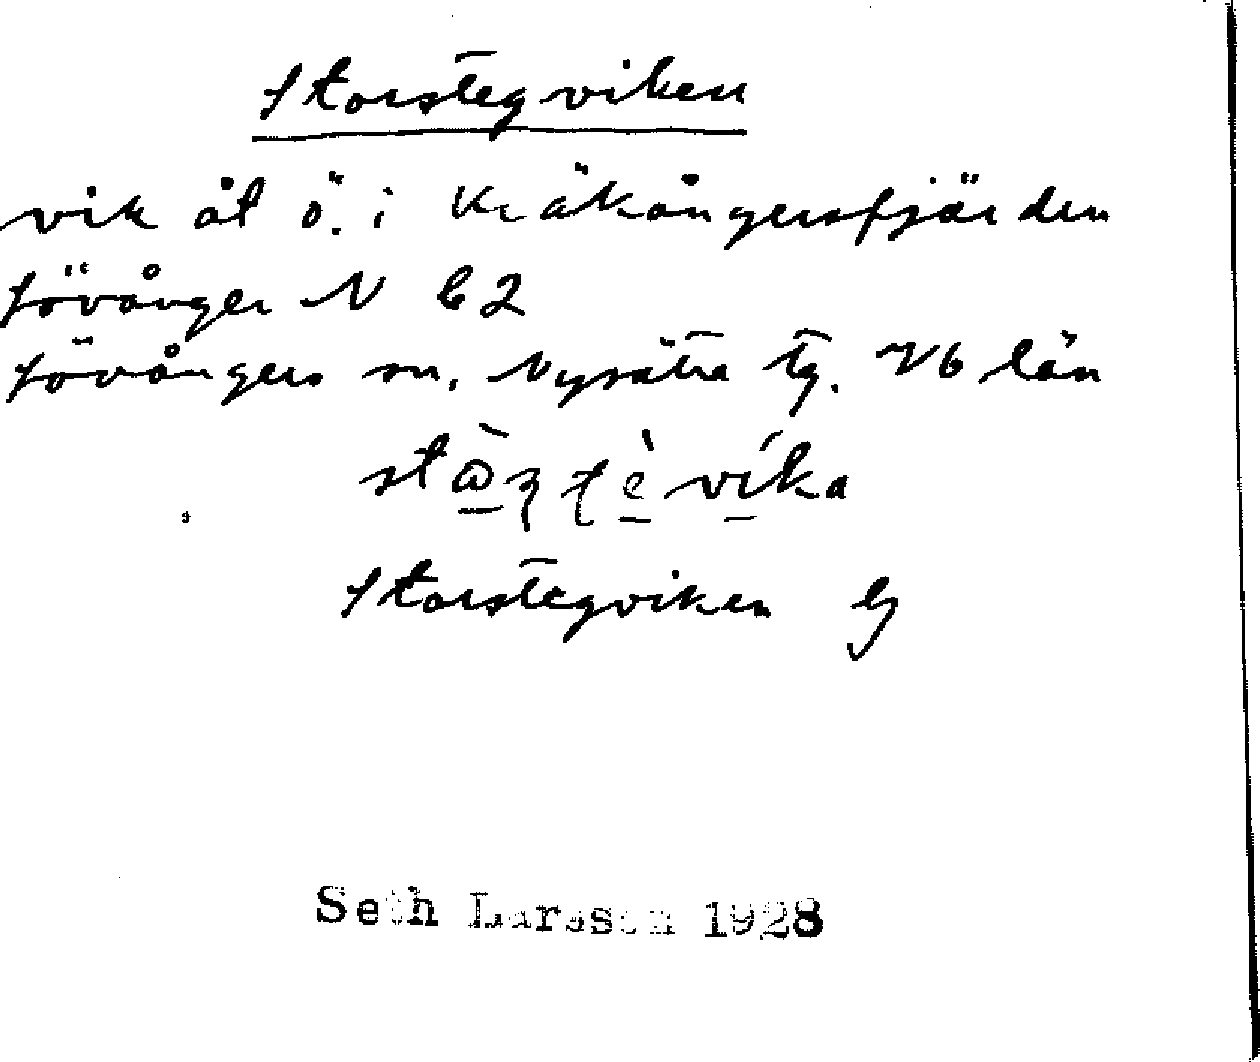 Storstegviken
vik åt ö. i Kräkångersfjärden
Lövånger N C2
Lövångers sn. Nysätra tg. Vb län
Storstegviken G
Seth Larsson 1928